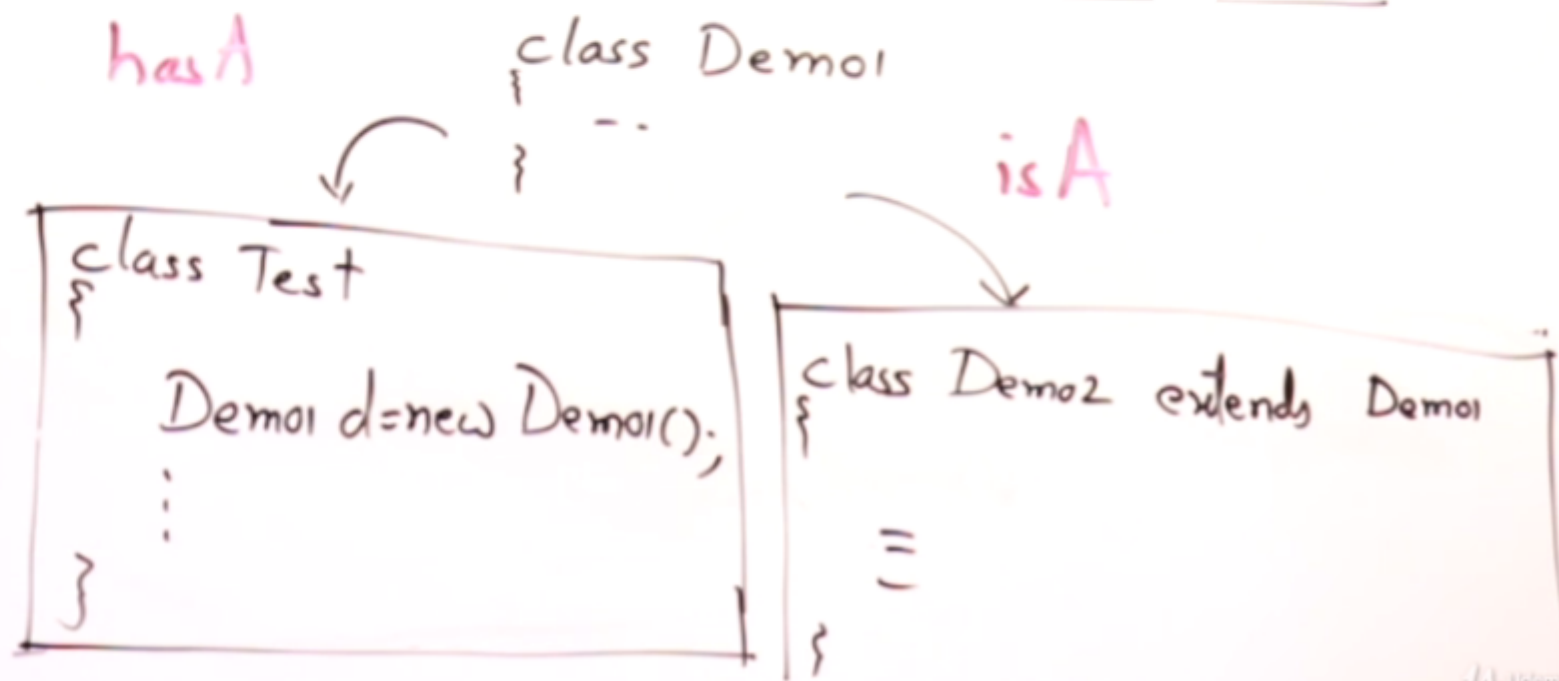 hasA
class Demo1
{
--
}
isA
class Test
{
Demo1 d=new Demo1();
⋮
}
class Demo2 extends Demo1
{
}